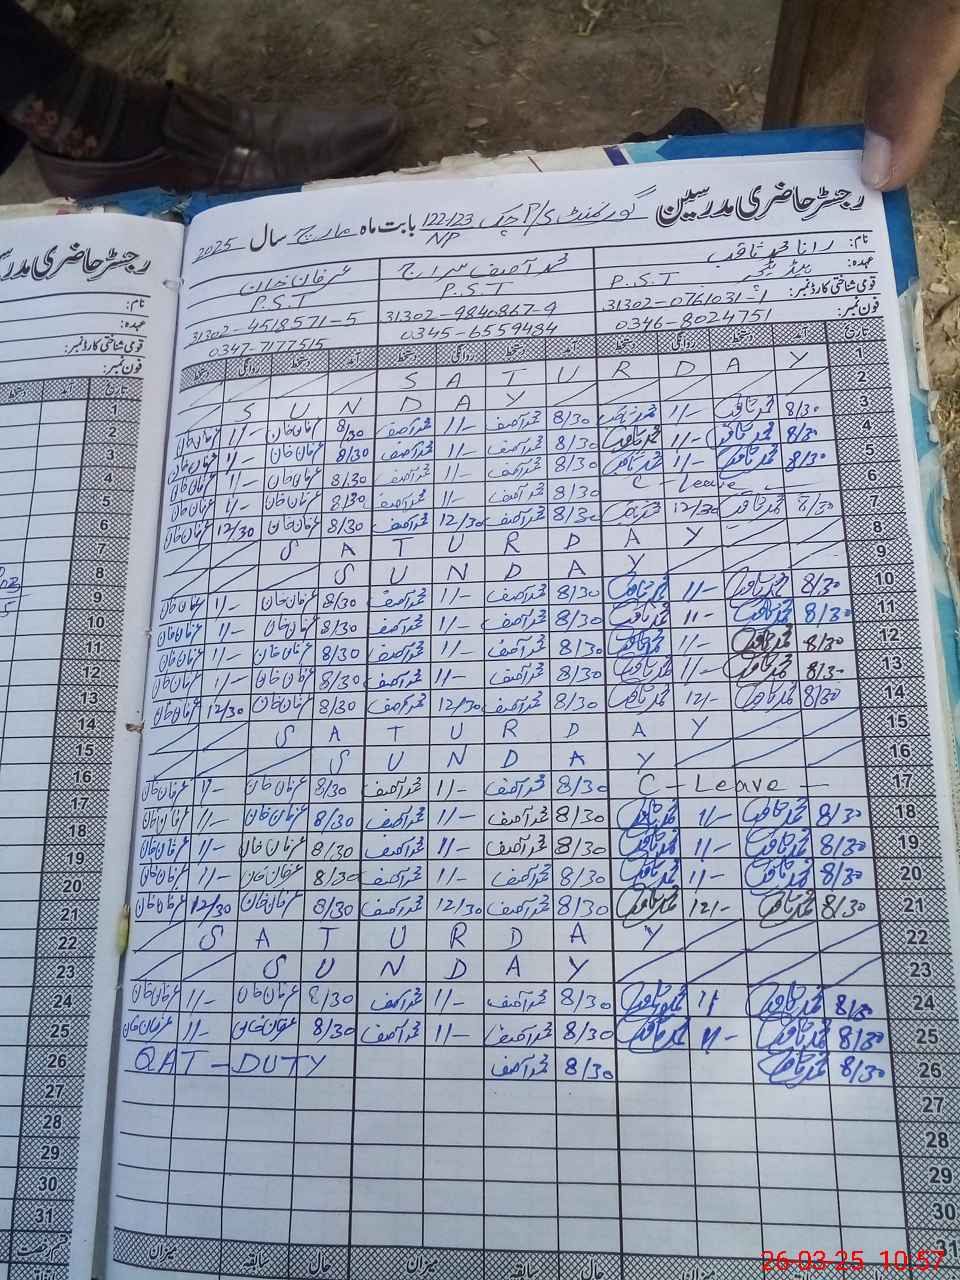 رجسٹر حاضری مدرسین گورنمنٹ P/S چک 122/123 NP بابت ماہ مارچ سال 2025
نام: رانا محمد ثاقب محمد آصف سراج عرفان خان
عہدہ: ہیڈ ٹیچر P.S.T P.S.T P.S.T
قومی شناختی کارڈ نمبر: 31302-0761031-1 31302-9840867-9 31302-4518571-5
فون نمبر: 0346-8024751 0345-6559484 0347-7177515
تاریخ آمد دستخط روانگی دستخط آمد دستخط روانگی دستخط آمد دستخط روانگی دستخط
1 SATURDAY
2 SUNDAY
3 8/30 محمد ثاقب 1/- 8/30 محمد آصف 1/- محمد آصف 8/30 عرفان خان 1/- عرفان خان
4 8/30 محمد ثاقب 1/- محمد ثاقب 8/30 محمد آصف 1/- محمد آصف 8/30 عرفان خان 1/- عرفان خان
5 8/30 محمد ثاقب 1/- محمد ثاقب 8/30 محمد آصف 1/- محمد آصف 8/30 عرفان خان 1/- عرفان خان
6 C-Leave 8/30 محمد آصف 1/- محمد آصف 8/30 عرفان خان 1/- عرفان خان
7 8/30 محمد ثاقب 12/30 8/30 محمد آصف 12/30 محمد آصف 8/30 عرفان خان 12/30 عرفان خان
8 SATURDAY
9 SUNDAY
10 8/30 محمد ثاقب 1/- محمد ثاقب 8/30 محمد آصف 1/- محمد آصف 8/30 عرفان خان 1/- عرفان خان
11 8/30 محمد ثاقب 1/- محمد ثاقب 8/30 محمد آصف 1/- محمد آصف 8/30 عرفان خان 1/- عرفان خان
12 8/30 محمد ثاقب 1/- محمد ثاقب 8/30 محمد آصف 1/- محمد آصف 8/30 عرفان خان 1/- عرفان خان
13 8/30 محمد ثاقب 1/- محمد ثاقب 8/30 محمد آصف 1/- محمد آصف 8/30 عرفان خان 1/- عرفان خان
14 8/30 محمد ثاقب 12/- محمد ثاقب 8/30 محمد آصف 12/30 محمد آصف 8/30 عرفان خان 12/30 عرفان خان
15 SATURDAY
16 SUNDAY
17 C-Leave 8/30 محمد آصف 1/- محمد آصف 8/30 عرفان خان 1/- عرفان خان
18 8/30 محمد ثاقب 1/- محمد ثاقب 8/30 محمد آصف 1/- محمد آصف 8/30 عرفان خان 1/- عرفان خان
19 8/30 محمد ثاقب 1/- محمد ثاقب 8/30 محمد آصف 1/- محمد آصف 8/30 عرفان خان 1/- عرفان خان
20 8/30 محمد ثاقب 1/- محمد ثاقب 8/30 محمد آصف 1/- محمد آصف 8/30 عرفان خان 1/- عرفان خان
21 8/30 محمد ثاقب 12/- محمد ثاقب 8/30 محمد آصف 12/30 محمد آصف 8/30 عرفان خان 12/30 عرفان خان
22 SATURDAY
23 SUNDAY
24 8/30 محمد ثاقب 1/ محمد ثاقب 8/30 محمد آصف 1/- محمد آصف 8/30 عرفان خان 1/- عرفان خان
25 8/30 محمد ثاقب 1/- محمد ثاقب 8/30 محمد آصف 1/- محمد آصف 8/30 عرفان خان 1/- عرفان خان
26 8/30 محمد ثاقب 8/30 محمد آصف QAT-DUTY
27
28
29
30
31
میزان حال سابقہ میزان حال سابقہ میزان
رجسٹر حاضری مدرس
نام:
عہدہ:
قومی شناختی کارڈ نمبر:
فون نمبر:
تاریخ آمد دستخط
1
2
3
4
5
6
7
8
9
10
11
12
13
14
15
16
17
18
19
20
21
22
23
24
25
26
27
28
29
30
31
قسم رخصت
26-03-25 10:57